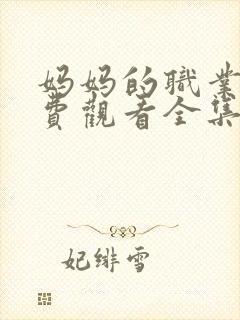 妈妈的職業
費觀看全集
妃绯雪